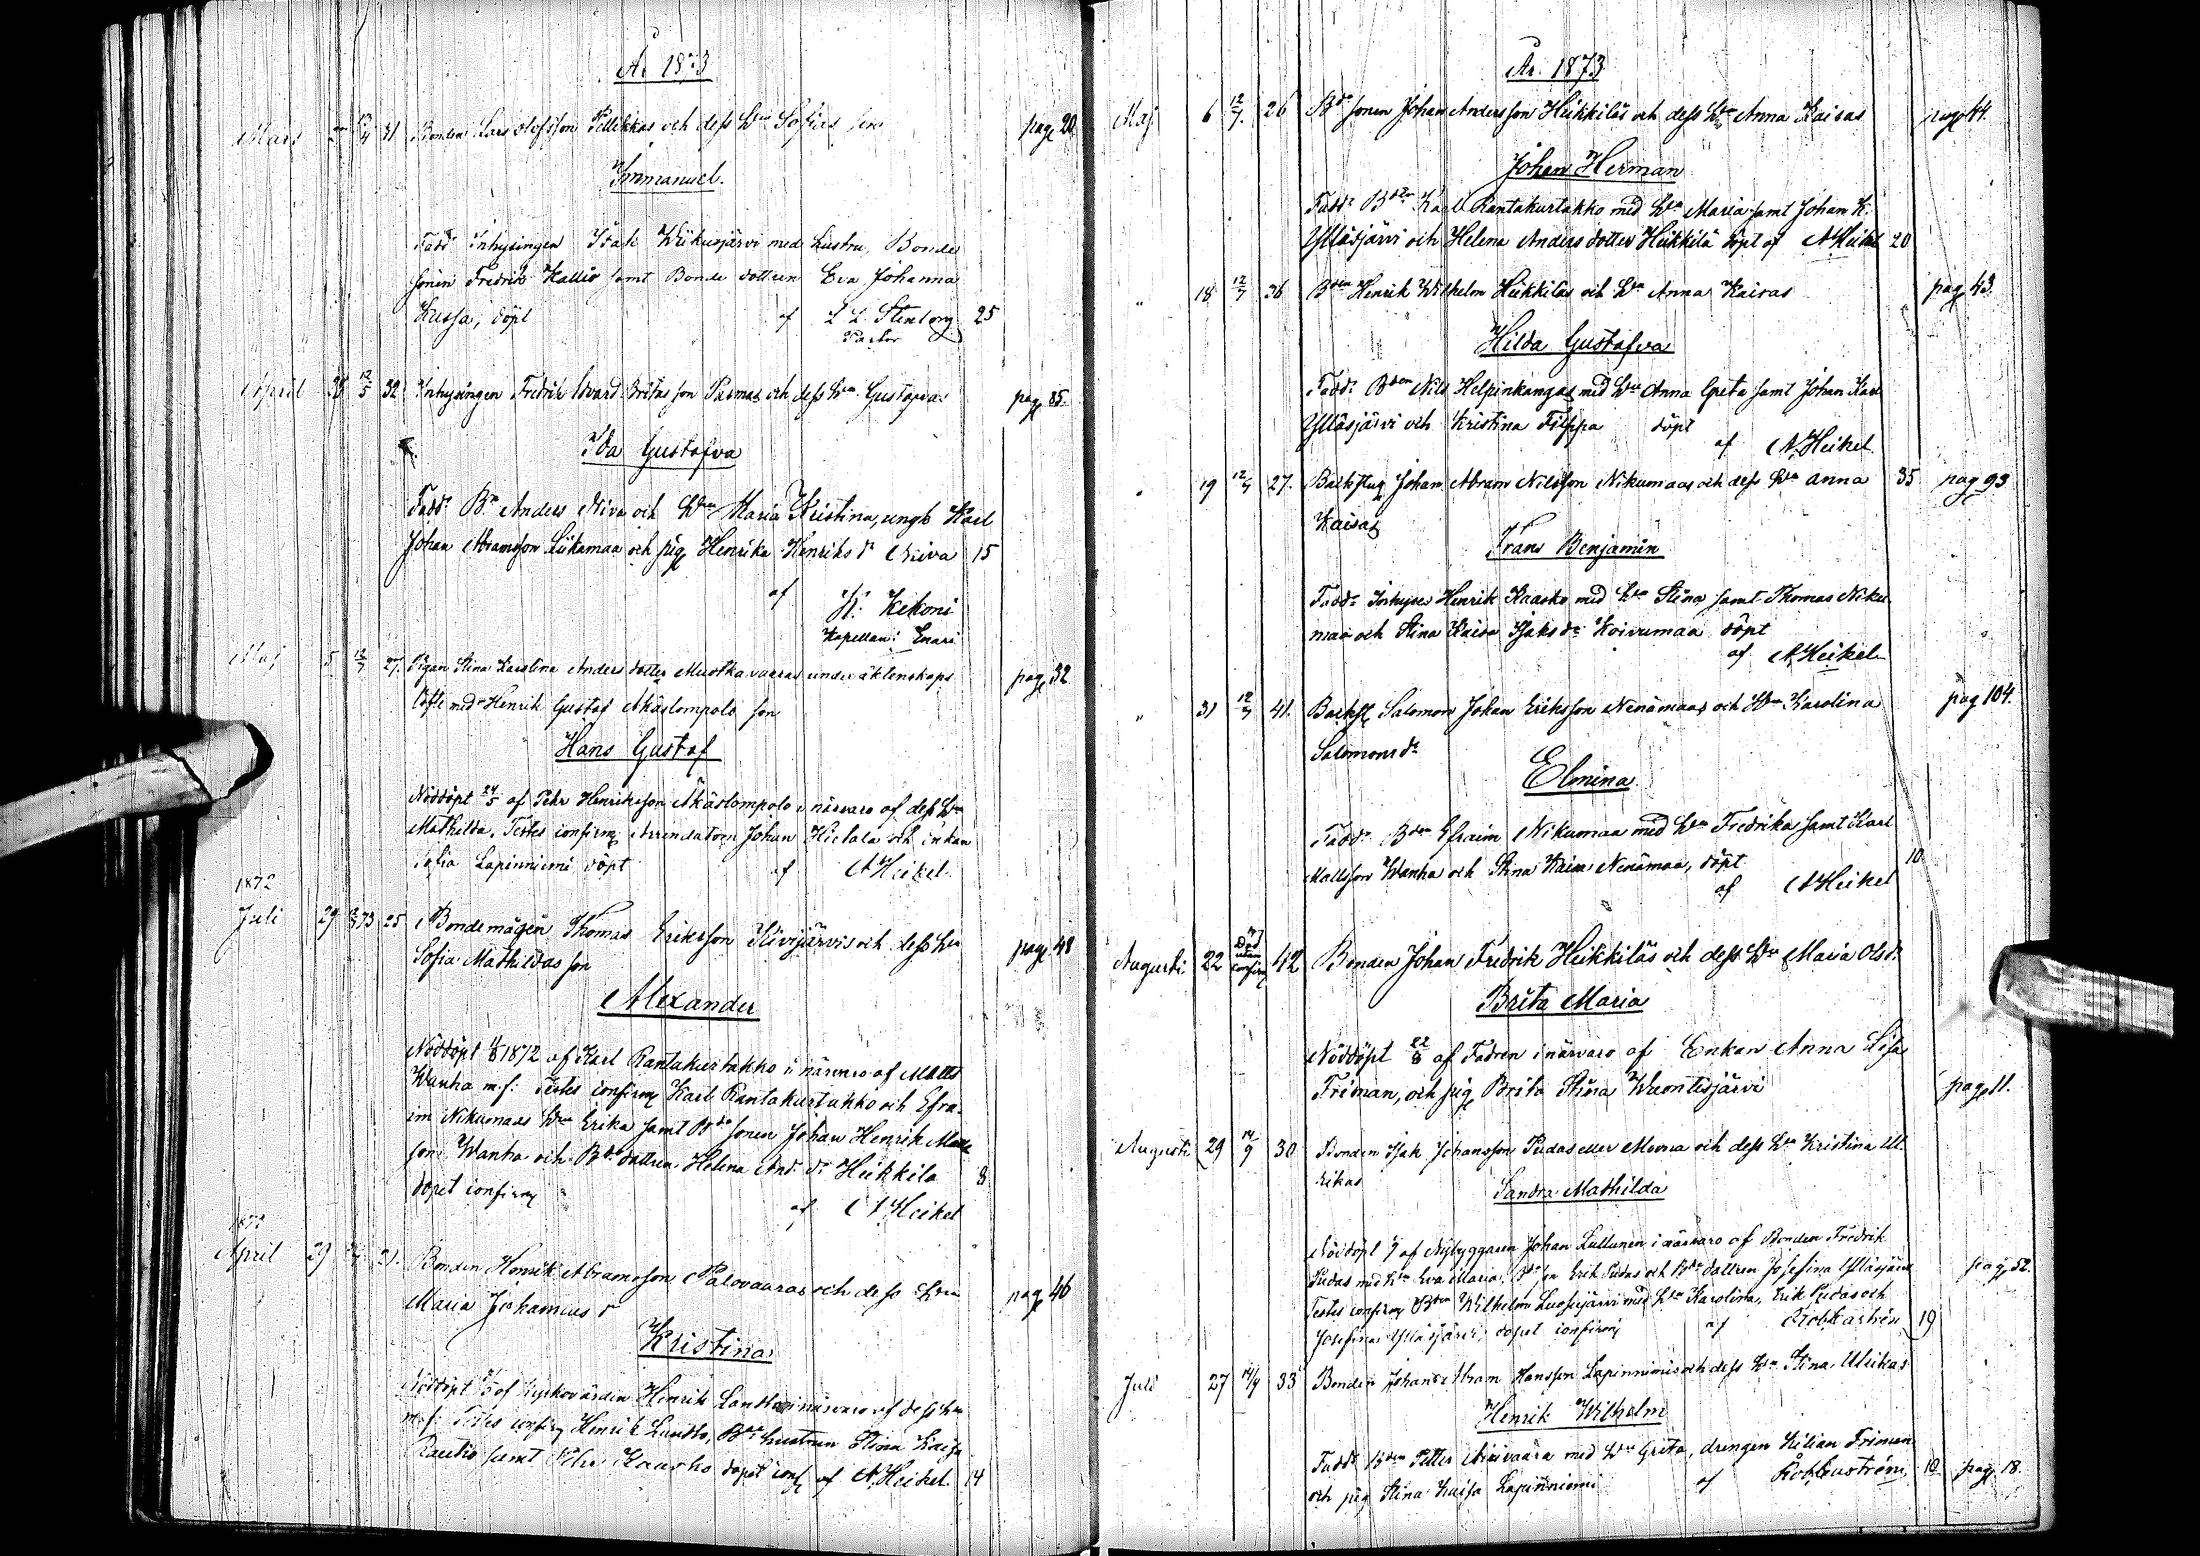 År 1873
Mars 31 Bonden Lars Olofsson Pellikkas och dess Hru Sofias son pag 20
Immanuel.
Fadd: Inhysingen Isak Wiikusjärvi med hustru, Bonde
sonen Fredrik Kallio samt Bonde dottren Eva Johanna
Kussa, döpt af L L Stenborg 25
Pastor
April 28 12/5 32 Inhysingen Fredrik Edvard Britas son Parmas och dess Hru Gustafva pag 85.
Ida Gustafva
Fadd: Bn Anders Niva och Hru Maria Kristina, ungk Karl
Johan Abramsson Liikamaa och pig Henrika Henriks dr Niva 15
af K: Kekoni
Kapellan i Enari
Maj 5 12/7 27. Pigan Stina Karolina Anders dotter Mustkavaaras under äktenskaps pag 32
löfte med Henrik Gustaf Äkäslompolo son
Hans Gustaf
Nöddöpt 24/5 af Petr Henriksson Äkäslompolo i närvaro af dess Hru
Mathilda. Testes confirm Arrendatorn Johan Hietala och enkan
Sofia Lapinniemi döpt af A Heikel.
1872
Juli 29 73 25 Bondemågen Thomas Eriksson Kivijärvis och dess Hru pag 48
Sofia Mathildas son
Alexander
Nöddöpt 1872 af Karl Rantakurtakko i närvaro af Matts
Wanha m.f: Testes confirm Karl Rantakurtakko och Efra-
im Nikumaas Hru Erika samt Bde sonen Johan Henrik Matts
son Wanha och Bde dottren Helena And. dr Heikkilä 8
dopet confirm af A Heikel
1873
April 29 21. Bonden Henrik Abramsson Palovaaras och dess Hru pag 46
Maria Johannas dr
Kristina
Nöddöpt af Kyrkovärden Henrik Lantto i närvaro af dess hru
m.f: Testes confirm Henrik Lantto, Bde hustrun Stina Kaisa
Rautio samt Kaarko dopet conf af A. Heikel. 14
År. 1873
Maj 6 12/7 26 Bde sonen Johan Andersson Heikkiläs och dess Hru Anna Kaisas pag 44.
Johan Herman
Fadd: Bden Karl Rantakurtakko med Hru Maria samt Johan K.
Ylläsjärvi och Helena Anders dotter Heikkilä döpt af A Heikel 20
" 18 12/7 36 Bden Henrik Wilhelm Heikkiläs och Hru Anna Kaisas pag 43.
Hilda Gustafva
Fadd: Bden Nils Helpinkangas med Hru Anna Greta samt Johan Karl
Ylläsjärvi och Kristina Filppa döpt
af A. Heikel
" 19 12/7 27. Backstug Johan Abram Nilsson Nikumaas och dess Hru Anna 35 pag 93
Kaisas
Frans Benjamin
Fadd: Inhyses Henrik Kaarko med Hru Stina samt Thomas Niku-
maa och Stina Kaisa Isaks dr Koivumaa döpt
af A Heikel
" 31 12/7 41. Backst Salomon Johan Eriksson Nenämaas och Hru Karolina pag 104.
Salomons dr
Elmina
Fadd: Bden Efraim Nikumaa med Hru Fredrika samt Karl
Mattsson Wanha och Stina Kaisa Nenämaa, döpt 10
af A Heikel
Augusti 22 Död utan confirm 42 Bonden Johan Fredrik Heikkiläs och dess Hru Maria Ols dr
Brita Maria
Nöddöpt 22/8 af Fadren i närvaro af Enkan Anna Lisa
Friman, och pig Brita Stina Wuontisjärvi pag 11.
Augusti 29 14/9 30 Bonden Isak Johansson Pudas eller Mourna och dess Hru Kristina Ul-
rikas
Sandra Mathilda
Nöddöpt af Nybyggaren Johan Lullunen i närvaro af Bonden Fredrik
Pudas med Hru Eva Maria, Erik Pudas och Bde dottren Josefina Ylläsjärvi pag 52.
Testes confirm Bden Wilhelm Luosujärvi med Hru Karolina, Erik Pudas och
Josefina Ylläsjärvi, dopet confirm af Rob Kastrén 19
Juli 27 14/9 33 Bonden Johan Abram Hansson Lapinniemis och dess Hru Stina Ulrikas
Henrik Wilhelm
Fadd: Bden Petter Niaivaara med Hru Greta, drengen Kilian Friman
och pig Stina Kaisa Lapinniemi af 10 pag 18.